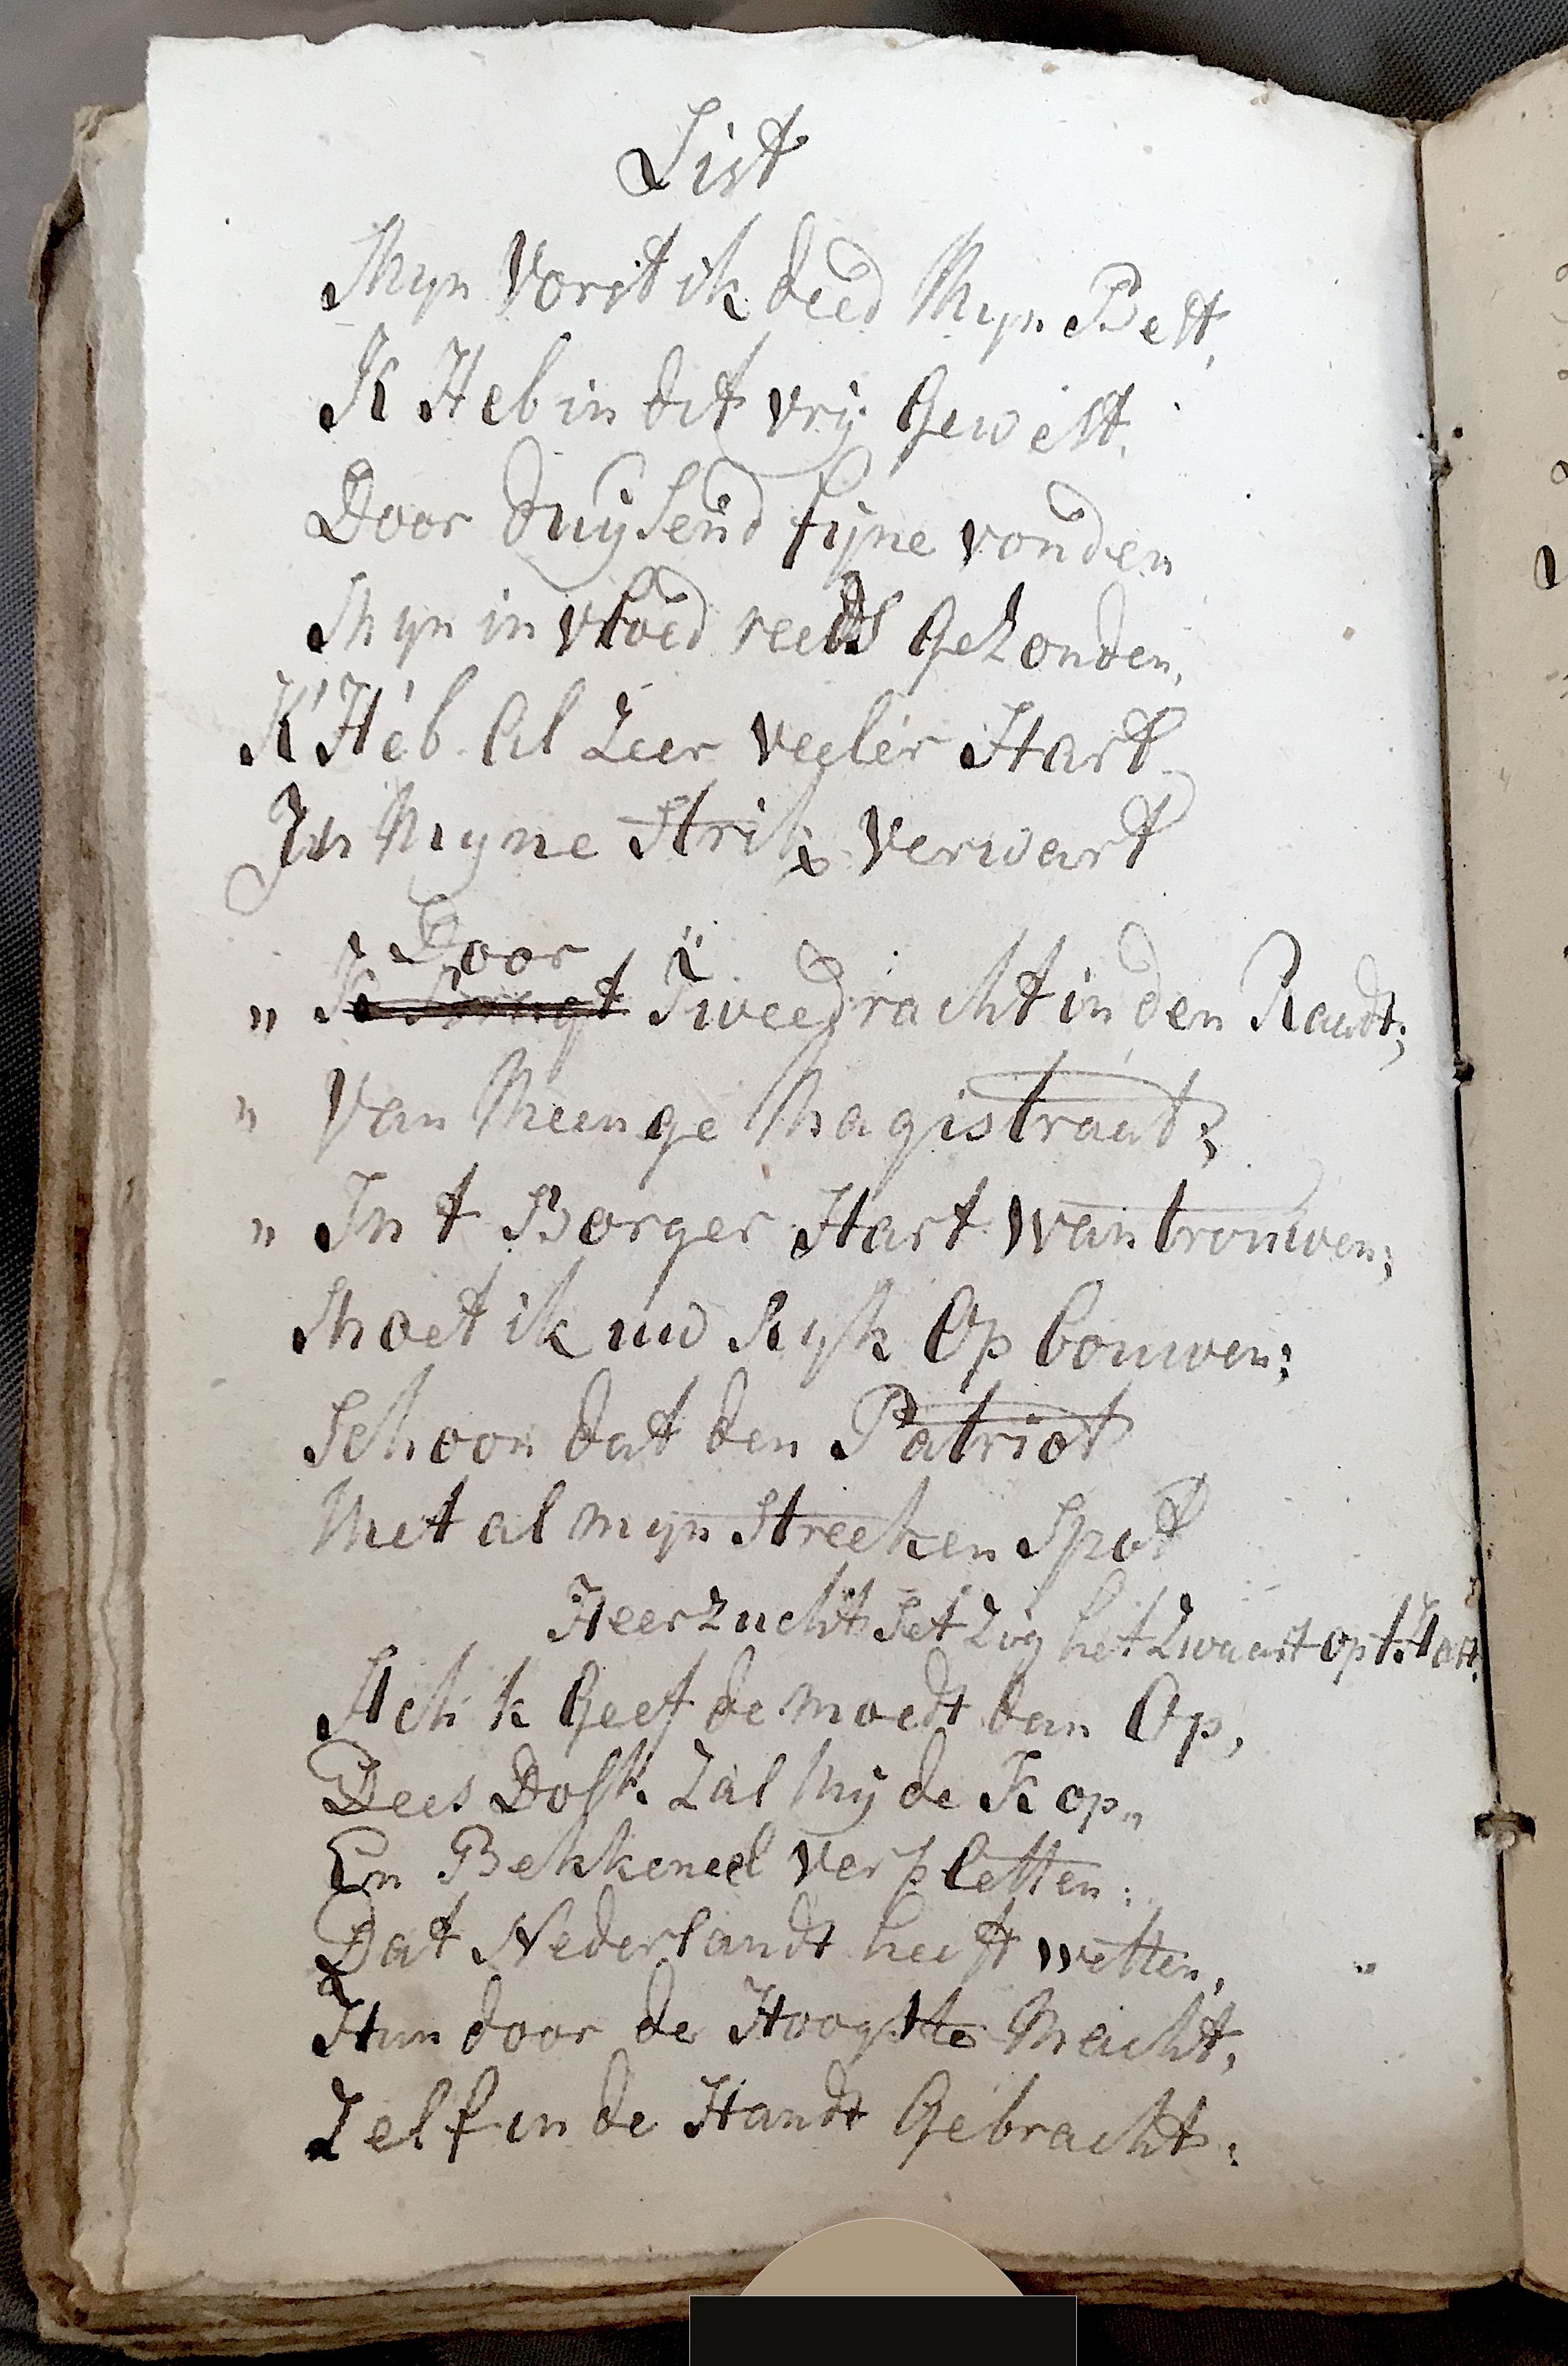 List
Myn Vorst ik deed Myn Best,
K Heb in dit vrij Gewest,
Door duijsend fijne vonden
Myn invloed reeds Gezonden,
K' Heb Al Zeer veeler Hart
In Myne Strik Verwart
Door
„ Tweedracht in den Raadt;
„ Van Meenge Magistraat;
„ In t Borger Hart wantrouwen;
Moet ik uw Ryk Op bouwen;
Schoon dat den Patriot
Met al myn Streeken Spot
Heerzucht Set Zig het Zwaart op t Hart
Ach k Geef de moedt dan Op,
Dees Dolk Zal My de Kop„
En Bekkeneel verpletten:
Dat Nederlandt heeft wetten,
Hun door de Hoogste Macht,
Zelf in de Handt Gebracht: